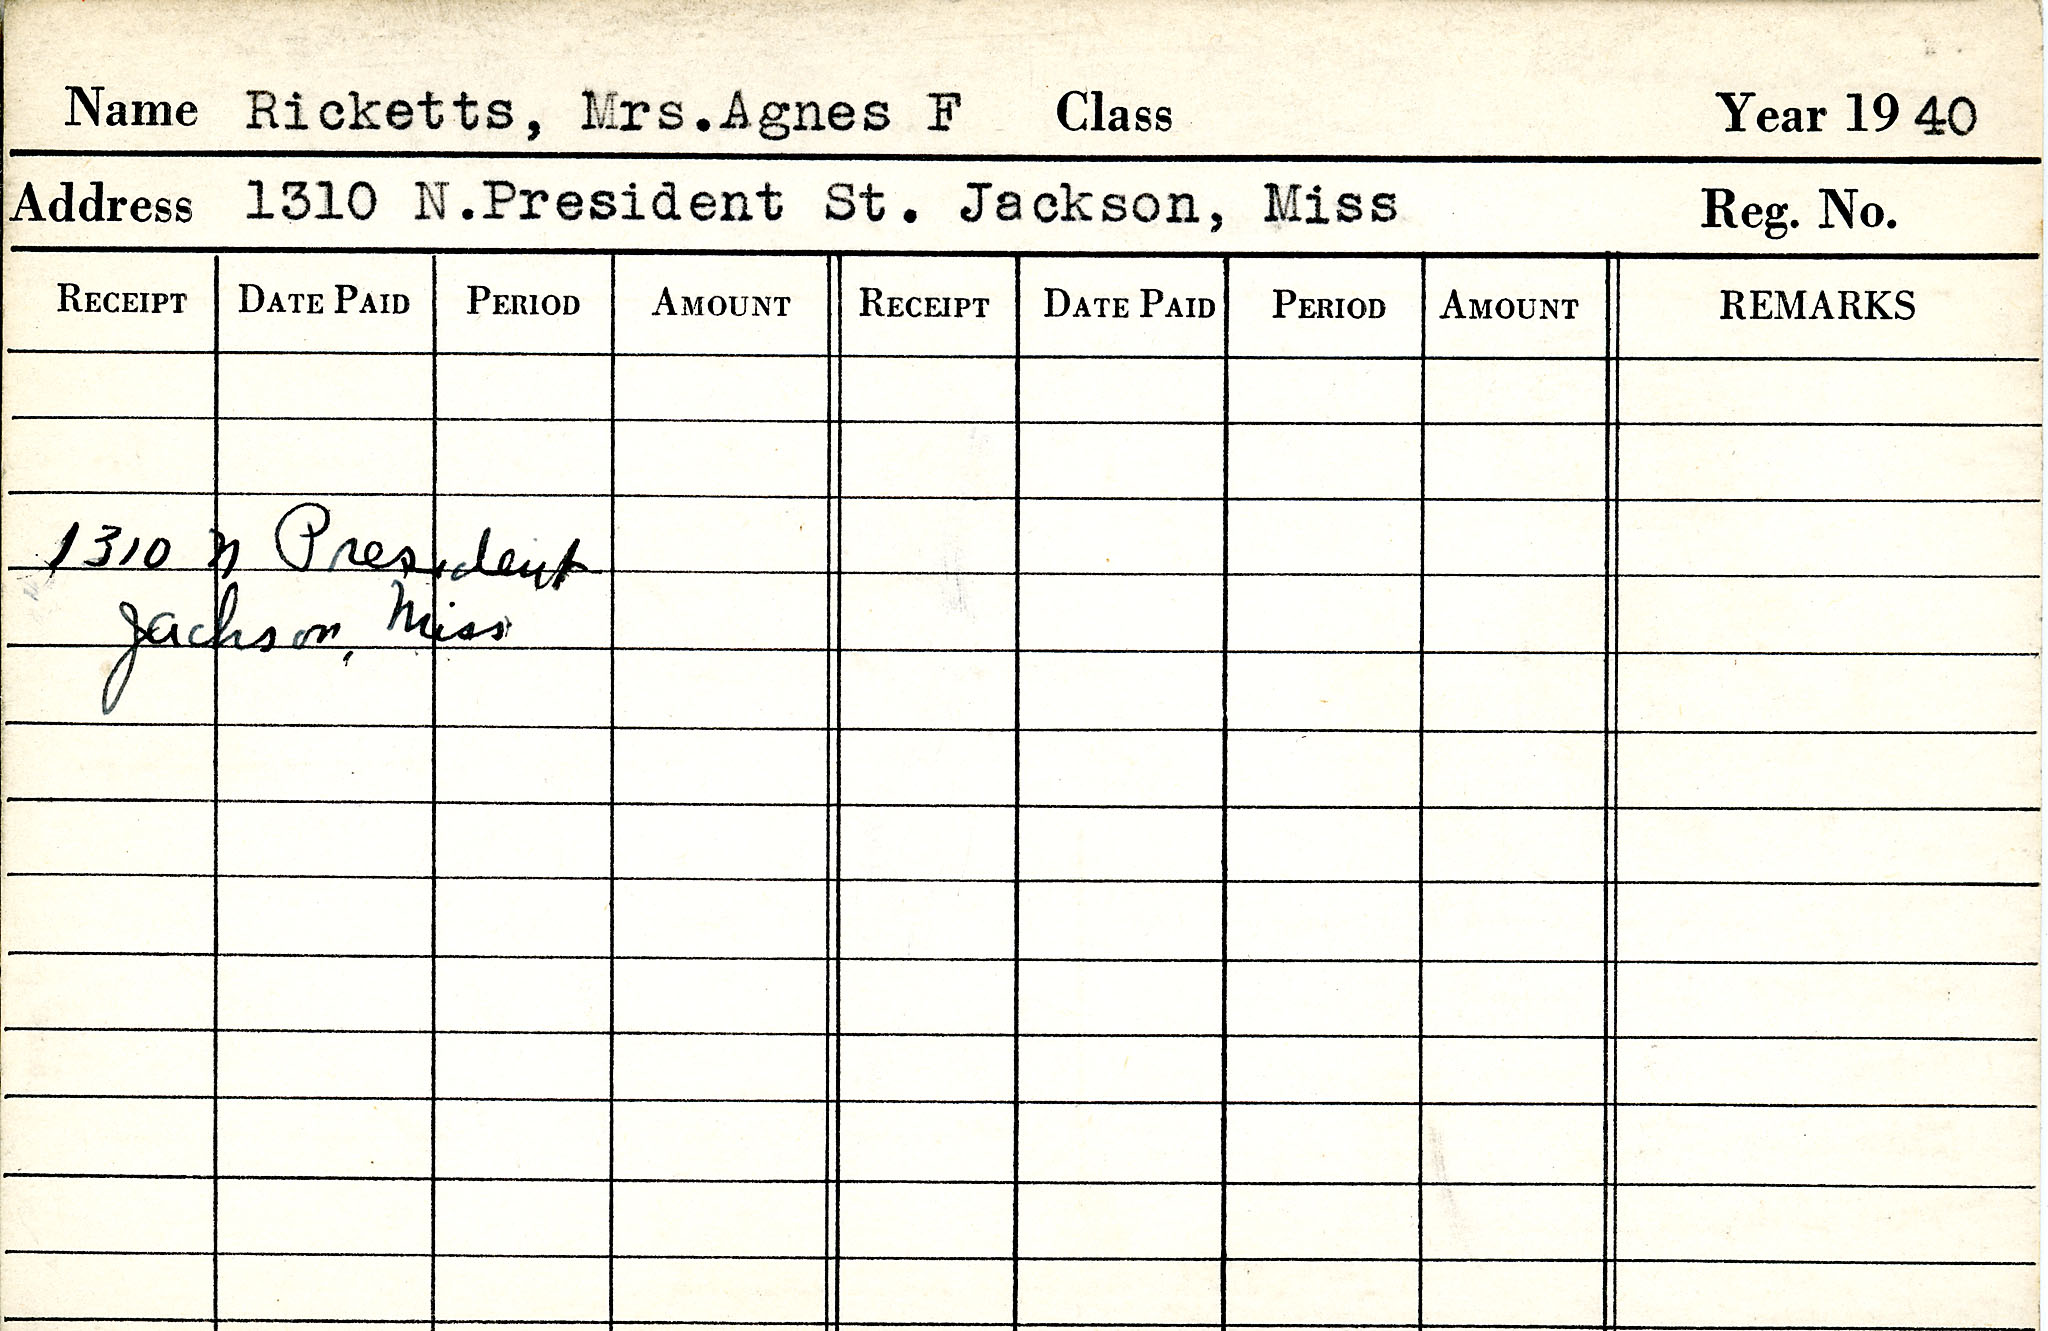 Name Ricketts, Mrs.Agnes F Class Year 19 40
Address 1310 N.President St. Jackson, Miss Reg. No.
RECEIPT DATE PAID PERIOD AMOUNT RECEIPT DATE PAID PERIOD AMOUNT REMARKS
1310 N President
Jackson, Miss